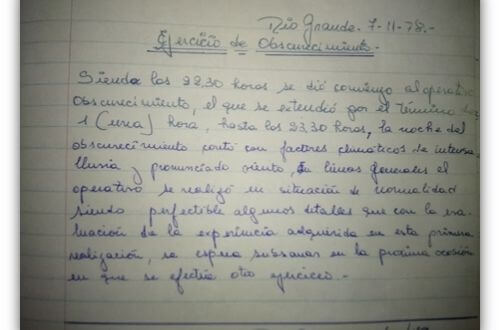 Rio Grande. 7-11-78.-
Ejercicio de Obscurecimiento.-
Siendo las 22,30 horas se dió comienzo al operativo
Obscurecimiento, el que se extendió por el término de
1 (una) hora, hasta las 23,30 horas, la noche del
obscurecimiento contó con factores climáticos de intensa
lluvia y pronunciado viento, En líneas generales el
operativo se realizó en situación de normalidad
siendo perfectible algunos detalles que con la eva-
luación de la experiencia adquirida en esta primera
realización, se espera subsanar en la proxima ocasión
en que se efectúe otro ejercicio.-